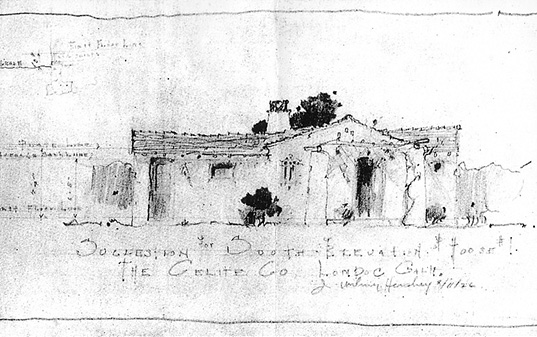 First Floor Line
Grade
Plate Line,
Floor Line
Suggestion for South Elevation of House #1.
The Celite Co. Lompoc Calif.
J. Wilmer Hershey 9/11/26